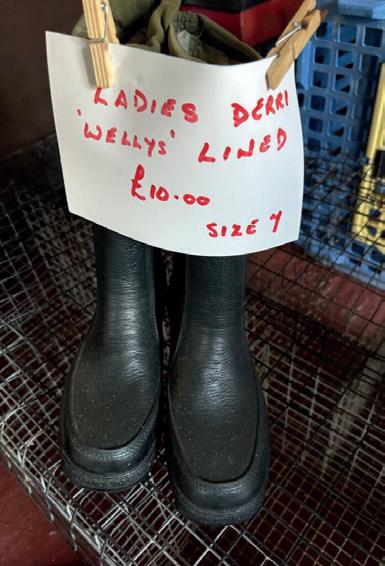 LADIES DERRI
'WELLYS' LINED
£10.00
SIZE 7